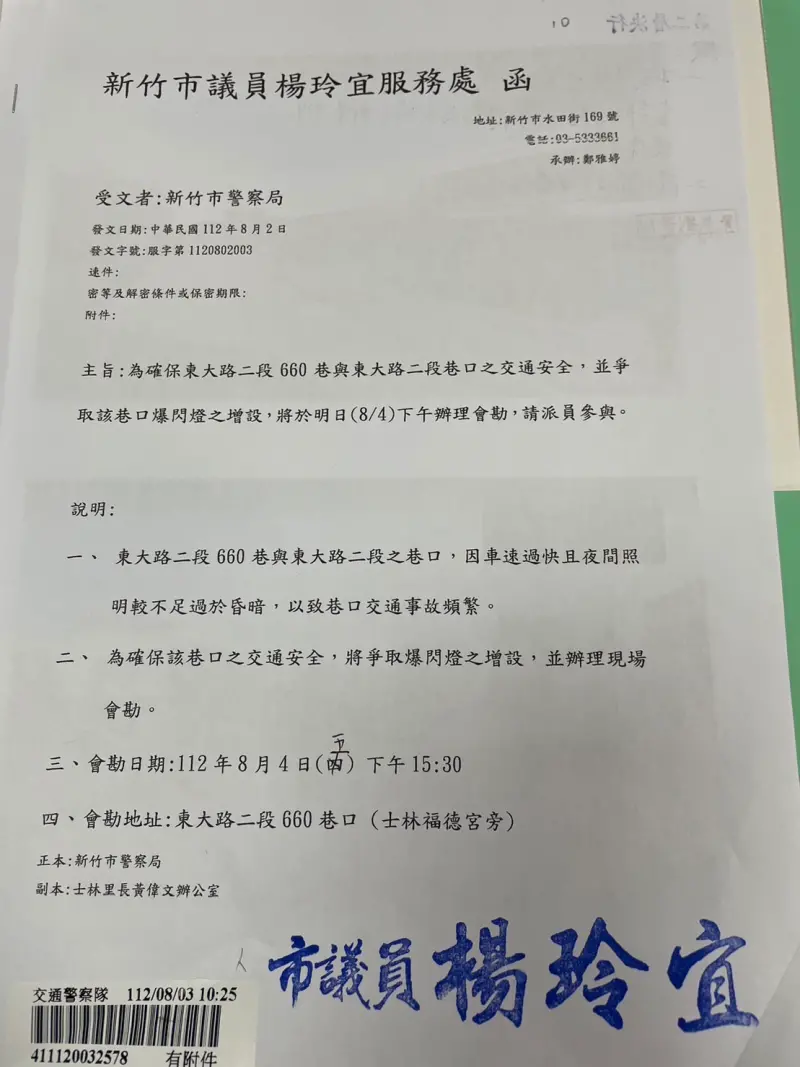 新竹市議員楊玲宜服務處 函
地址:新竹市水田街169號
電話:03-5333661
承辦:鄭雅婷
受文者:新竹市警察局
發文日期:中華民國112年8月2日
發文字號:服字第1120802003
速件:
密等及解密條件或保密期限:
附件:
主旨:為確保東大路二段660巷與東大路二段巷口之交通安全,並爭
取該巷口爆閃燈之增設,將於明日(8/4)下午辦理會勘,請派員參與。
說明:
一、 東大路二段660巷與東大路二段之巷口,因車速過快且夜間照
明較不足過於昏暗,以致巷口交通事故頻繁。
二、 為確保該巷口之交通安全,將爭取爆閃燈之增設,並辦理現場
會勘。
五
三、會勘日期:112年8月4日(四) 下午15:30
四、會勘地址:東大路二段660巷口 (士林福德宮旁)
正本:新竹市警察局
副本:士林里長黃偉文辦公室
市議員楊玲宜
交通警察隊 112/08/03 10:25
411120032578 有附件